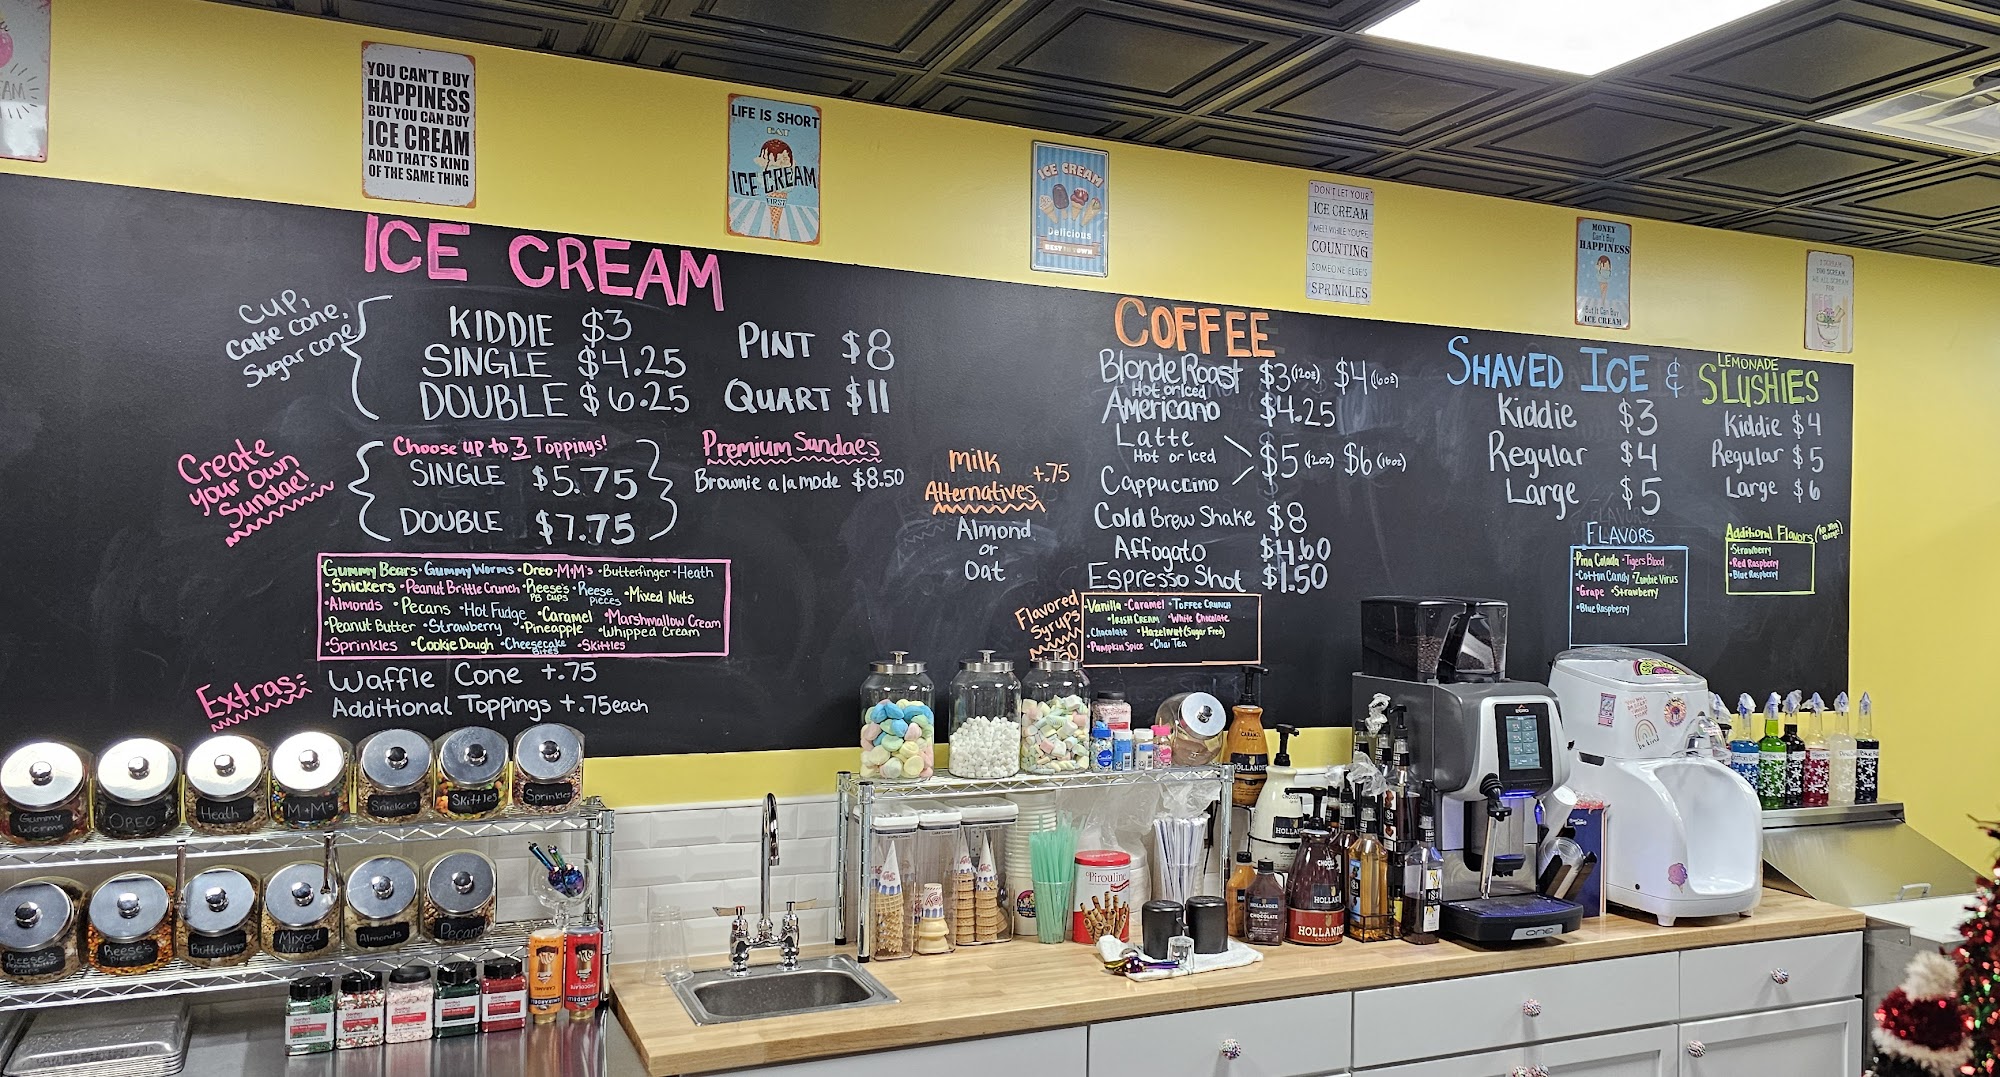 YOU CAN'T BUY
HAPPINESS
BUT YOU CAN BUY
ICE CREAM
AND THAT'S KIND
OF THE SAME THING
LIFE IS SHORT
EAT
ICE CREAM
FIRST
ICE CREAM
Delicious
BEST IN TOWN
"DON'T LET YOUR"
ICE CREAM
MELT WHILE YOU'RE
COUNTING
SOMEONE ELSE'S
SPRINKLES
MONEY
Can't Buy
HAPPINESS
But It Can Buy
ICE CREAM
I SCREAM
YOU SCREAM
WE ALL SCREAM
FOR
ICE CREAM
CUP,
cake cone,
Sugar cone
KIDDIE $3
SINGLE $4.25
DOUBLE $6.25
PINT $8
QUART $11
Create
your Own
Sundae!
Choose up to 3 Toppings!
SINGLE $5.75
DOUBLE $7.75
Premium Sundaes
Brownie a la mode $8.50
Gummy Bears • Gummy Worms • Oreo • M+M's • Butterfinger • Heath
• Snickers • Peanut Brittle Crunch • Reese's PB CUPS • Reese Pieces • Mixed Nuts
• Almonds • Pecans • Hot Fudge • Caramel • Marshmallow Cream
• Peanut Butter • Strawberry • Pineapple • Whipped Cream
• Sprinkles • Cookie Dough • Cheesecake Bites • Skittles
Extras:
Waffle Cone +.75
Additional Toppings +.75 each
Milk
Alternatives +.75
Almond
or
Oat
COFFEE
Blonde Roast $3 (12oz) $4 (16oz)
Hot or Iced
Americano $4.25
Latte
Hot or Iced
$5 (12oz) $6 (16oz)
Cappuccino
Cold Brew Shake $8
Affogato $4.60
Espresso Shot $1.50
Flavored
Syrups
• Vanilla • Caramel • Toffee Crunch
• Irish Cream • White Chocolate
• Chocolate • Hazelnut (Sugar Free)
• Pumpkin Spice • Chai Tea
SHAVED ICE &
Kiddie $3
Regular $4
Large $5
LEMONADE
SLUSHIES
Kiddie $4
Regular $5
Large $6
FLAVORS
• Pina Colada • Tigers Blood
• Cotton Candy • Zombie Virus
• Grape • Strawberry
• Blue Raspberry
Additional Flavors
• Strawberry
• Red Raspberry
• Blue Raspberry
Gummy
Worms
OREO
Heath
M+M's
Snickers
Skittles
Sprinkles
Reese's
Peanut Butter
Cups
Reese's
Pieces
Butterfinger
Mixed
Nuts
Almonds
Pecans
CARAMEL
CHOCOLATE
GHIRARDELLI
Pirouline
HOLLANDER
CHOCOLATE
HOLLANDER
be kind